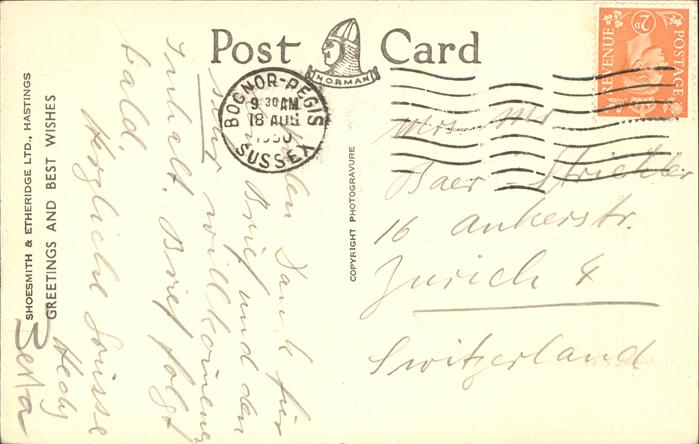 Post Card
NORMAN
BOGNOR-REGIS
9 30 AM
18 AUG
1950
SUSSEX
POSTAGE
REVENUE
2D
SHOESMITH & ETHERIDGE LTD., HASTINGS
GREETINGS AND BEST WISHES
COPYRIGHT PHOTOGRAVURE
Vielen Dank für
Brief und den
sehr willkommenen
Inhalt. Brief folgt
bald.
Herzliche Grüsse
Hedy
Berta
Mrs. Mr.
Baer-Strickler
16 Ankerstr.
Zurich 4
Switzerland